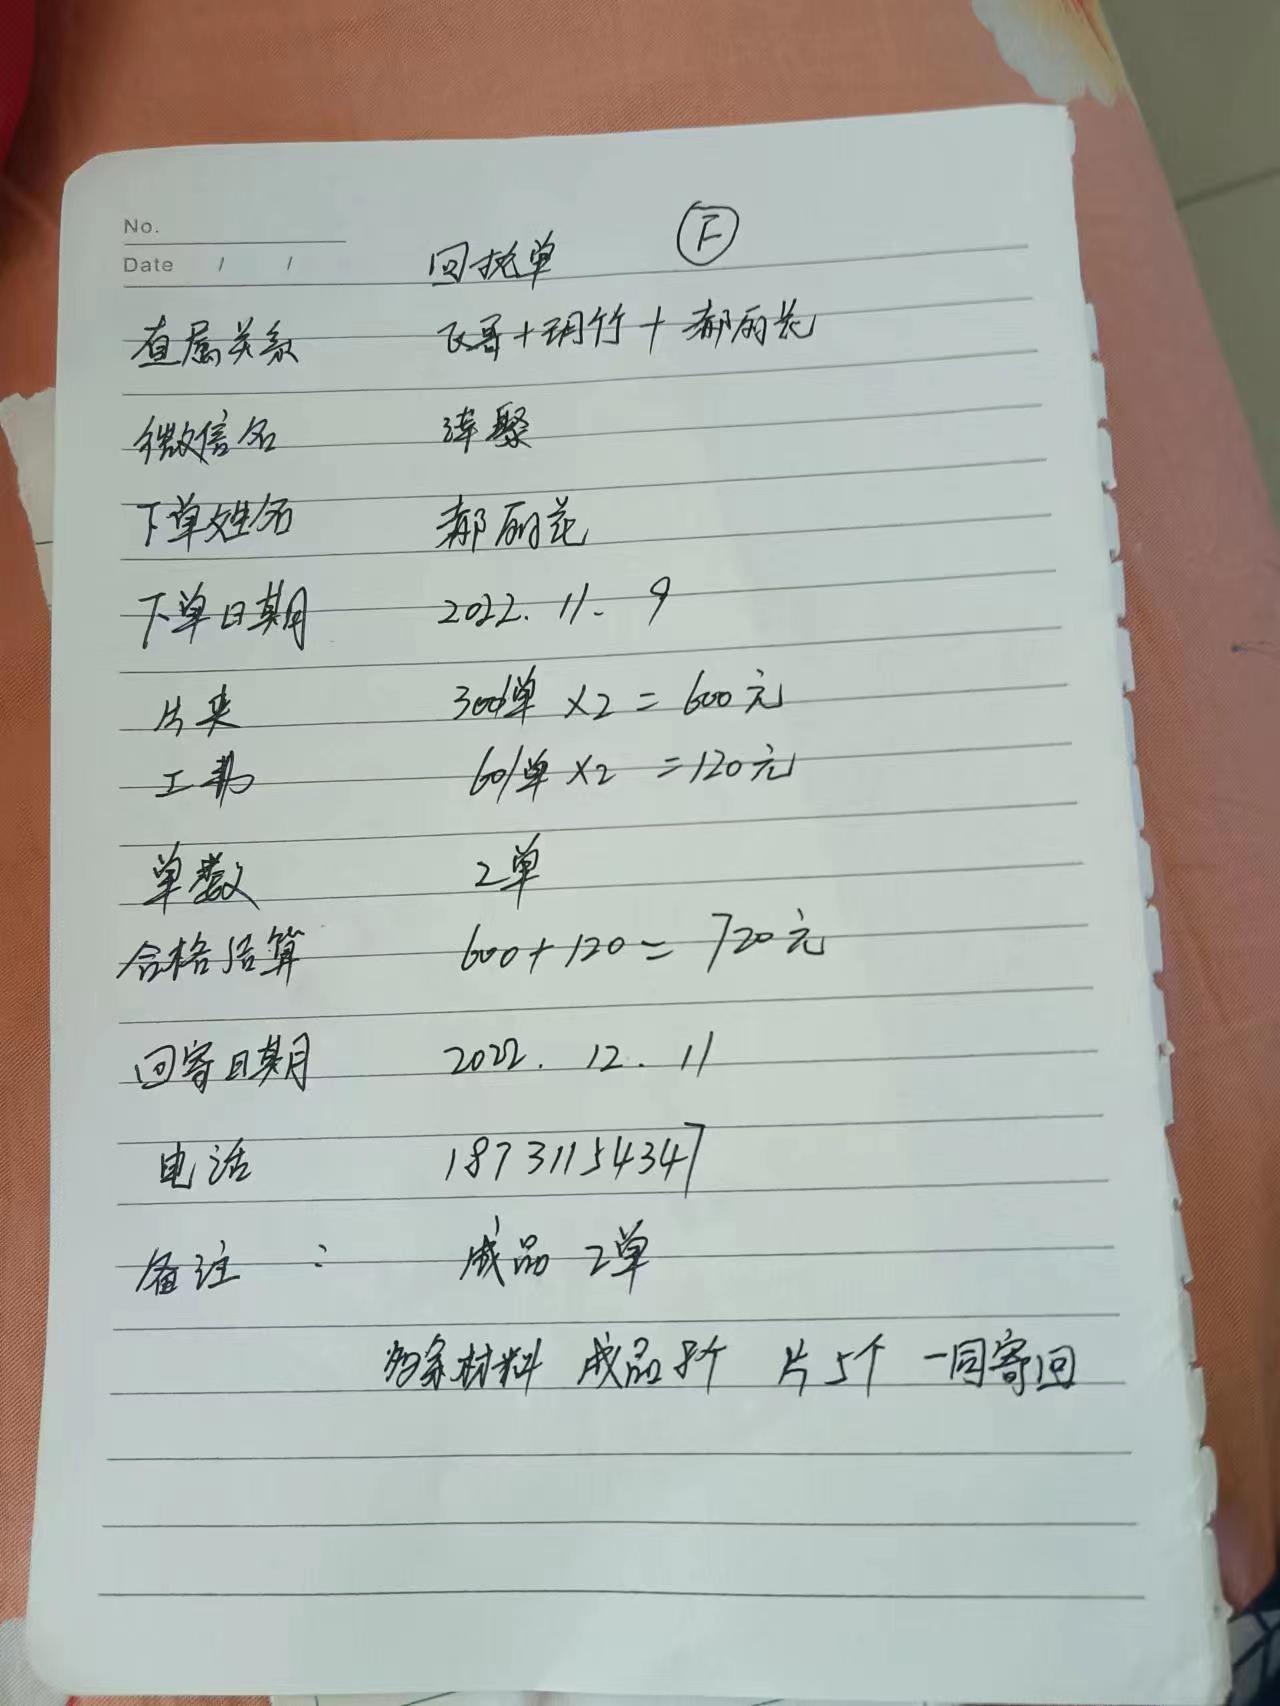 No.
Date / /
回执单 F
直属关系 飞哥+玥竹+郝丽花
微信名 连聚
下单姓名 郝丽花
下单日期 2022.11.9
片夹 300/单×2=600元
工勤 60/单×2=120元
单数 2单
合格结算 600+120=720元
回寄日期 2022.12.11
电话 18731154347
备注: 成品2单
材料 成品8个 片5个 一同寄回